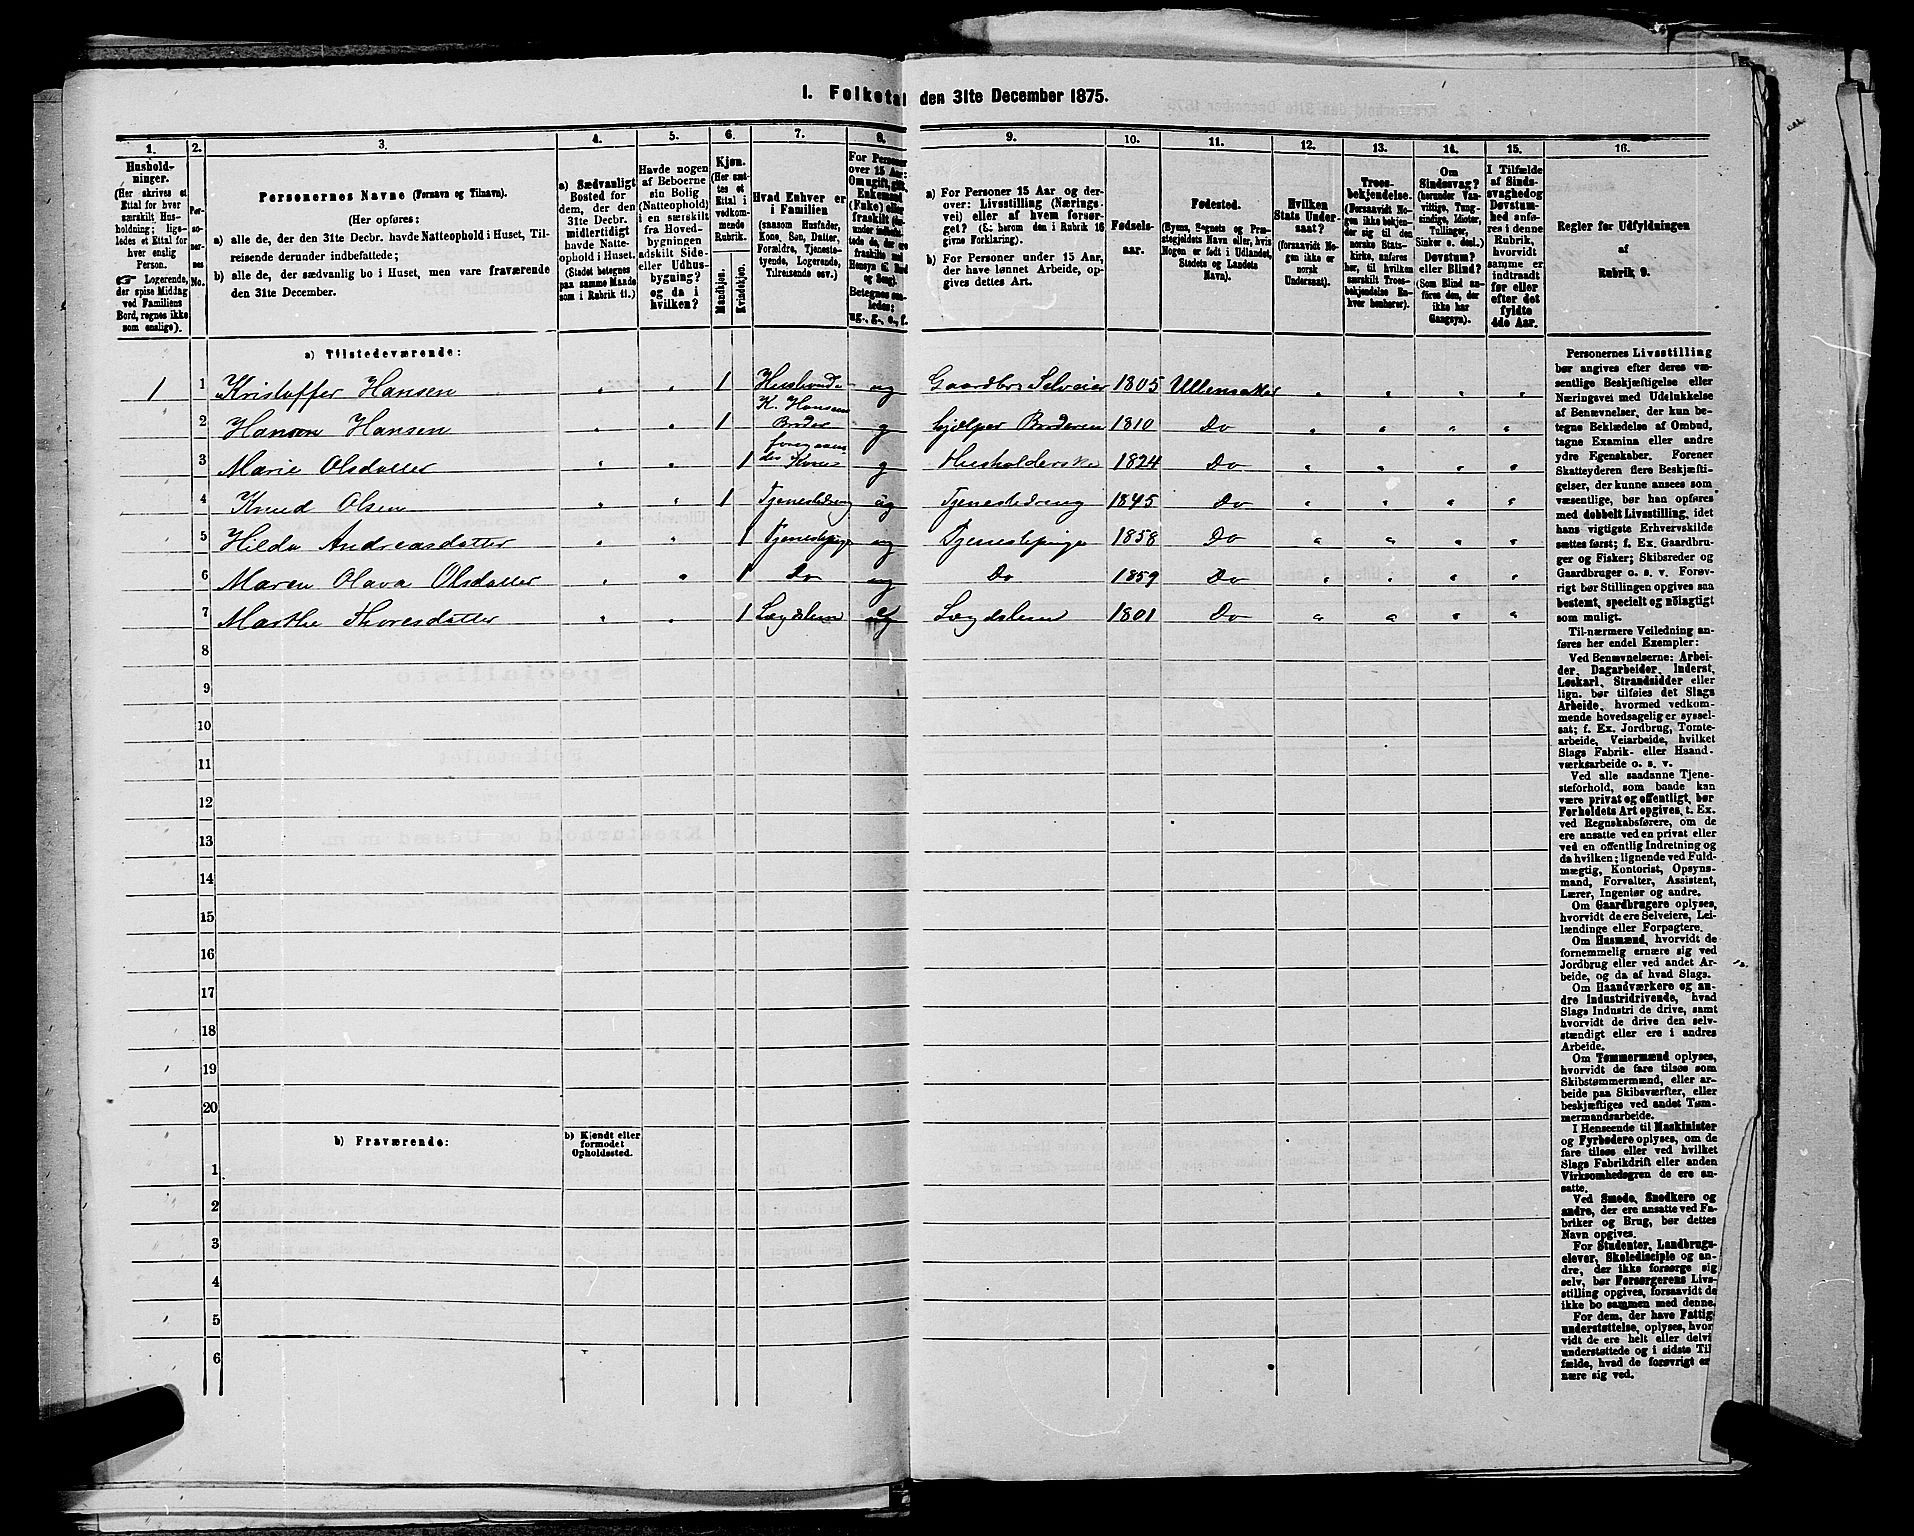 I. Folketal den 31te December 1875.
1. 2. 3. 4. 5. 6. 7. 8. 9. 10. 11. 12. 13. 14. 15. 16.
Hushold-
ninger.
(Her skrives et
Ettal for hver
særskilt Hus-
holdning; lige-
ledes et Ettal for
hver enslig
Person.
☞ Logerende,
der spise Middag
ved Familiens
Bord, regnes ikke
som enslige).
Per-
so-
ner-
nes
No.
Personernes Navne (Fornavn og Tilnavn).
(Her opføres:
a) alle de, der den 31te Decbr. havde Natteophold i Huset, Til-
reisende derunder indbefattede;
b) alle de, der sædvanlig bo i Huset, men vare fraværende
den 31te December.
a) Sædvanligt
Bosted for
dem, der den
31te Decbr.
midlertidigt
havde Natte-
ophold i Huset.
(Stedet betegnes
paa samme Maade
som i Rubrik 11.)
Havde nogen
af Beboerne
sin Bolig
(Natteophold)
i en særskilt
fra Hoved-
bygningen
adskilt Side-
eller Udhus-
bygning?
og da i
hvilken?
Kjøn.
(Her sæt-
tes et
Ettal i
vedkom-
mende
Rubrik.
Mandkjøn.
Kvindekjøn.
Hvad Enhver er
i Familien
(saasom Husfader,
Kone, Søn, Datter,
Forældre, Tjeneste-
tyende, Logerende,
Tilreisende osv.)
For Personer
over 15 Aar:
Om ugift, gift,
Enkemand
(Enke) eller
fraskilt
Betegnes saa-
ledes:
ug., g., e., f.
a) For Personer 15 Aar og der-
over: Livsstilling (Nærings-
vei) eller af hvem forsør-
get? (Se herom den i Rubrik 16
givne Forklaring).
b) For Personer under 15 Aar,
der have lønnet Arbeide, op-
gives dettes Art.
Fødsels-
aar.
Fødested.
(Byens, Sognets og Præ-
stegjeldets Navn eller, hvis
Nogen er født i Udlandet,
Stedets og Landets
Navn).
Hvilken
Stats Under-
saat?
(forsaavidt No-
gen ikke er
norsk
Undersaat).
Troes-
bekjendelse.
(Forsaavidt No-
gen ikke bekjen-
der sig til den
norske Stats-
kirke, anføres
her, til hvilken
særskilt Troes-
bekjendelse En-
hver henhører).
Om
Sindssvag?
(herunder Van-
vittige, Tung-
sindige, Idioter,
Tullinger,
Sinker o. desl.)
Døvstum?
eller Blind?
(Som Blind an-
føres den, der
ikke har
Gangsyn).
I Tilfælde
af Sinds-
svaghed og
Døvstum-
hed anfø-
res i denne
Rubrik,
hvorvidt
samme er
indtraadt
før eller
efter det
fyldte
4de Aar.
Regler for Udfyldningen
af
Rubrik 9.
a) Tilstedeværende:
1 1 Kristoffer Hansen „ „ 1 Husbonde ug Gaardbr. Selveier 1805 Ullensaker „ „ „ „
2 Hansen Hansen „ „ 1 K. Hansens Broder g hjælper Broderen 1810 Do „ „ „ „
3 Marie Olsdatter „ „ 1 foregaaendes Kone g Husholderske 1824 Do „ „ „ „
4 Knud Olsen „ „ 1 Tjenestedreng ug Tjenestedreng 1845 Do „ „ „ „
5 Hilda Andreasdatter „ „ 1 Tjenestepige ug Tjenestepige 1858 Do „ „ „ „
6 Maren Olava Olsdatter „ „ 1 Do ug Do 1859 Do „ „ „ „
7 Marthe Thoresdatter „ „ 1 Lægdslem Lægdslem 1801 Do „ „ „ „
8
9
10
11
12
13
14
15
16
17
18
19
20
b) Fraværende:
b) Kjendt eller
formodet
Opholdssted.
1
2
3
4
5
6
Personernes Livsstilling
bør angives efter deres væ-
sentlige Beskjæftigelse eller
Næringsvei med Udelukkelse
af Benævnelser, der kun be-
tegne Beklædelse af Ombud,
tagne Examina eller andre
ydre Egenskaber. Forener
Skatteyderen flere Beskjæfti-
gelser, der kunne ansees som
væsentlige, bør han opføres
med dobbelt Livsstilling, idet
hans vigtigste Erhvervskilde
sættes først; f. Ex. Gaardbru-
ger og Fisker; Skibsreder og
Gaardbruger o. s. v. Forøv-
rigt bør Stillingen opgives saa
bestemt, specielt og nøiagtigt
som muligt.
Til nærmere Veiledning an-
føres her endel Exempler:
Ved Benævnelserne: Arbei-
der, Dagarbeider, Inderst,
Løskarl, Strandsidder eller
lign. bør tilføies det Slags
Arbeide, hvormed vedkom-
mende hovedsagelig er syssel-
sat; f. Ex. Jordbrug, Tomte-
arbeide, Veiarbeide, hvilket
Slags Fabrik- eller Haand-
værksarbeide o. s. v.
Ved alle saadanne Tjene-
steforhold, som baade kan
være privat og offentligt, bør
Forholdets Art opgives, t. Ex.
ved Regnskabsførere, om de
ere ansatte ved en privat eller
ved en offentlig Indretning og
da hvilken; lignende ved Fuld-
mægtig, Kontorist, Opsyns-
mand, Forvalter, Assistent,
Lærer, Ingeniør og andre.
Om Gaardbrugere oplyses,
hvorvidt de ere Selveiere, Lei-
lændinge eller Forpagtere.
Om Husmænd, hvorvidt de
fornemmelig ernære sig ved
Jordbrug eller ved andet Ar-
beide, og da af hvad Slags.
Om Haandværkere og an-
dre Industridrivende, hvad
Slags Industri de drive, samt
hvorvidt de drive den selv-
stændigt eller ere i andres
Arbeide.
Om Tømmermænd oplyses,
hvorvidt de fare tilsøs som
Skibstømmermænd, eller ar-
beide paa Skibsværfter, eller
beskjæftiges ved andet Tøm-
mermandsarbeide.
I Henseende til Maskinister
og Fyrbødere oplyses, om de
fare tilsøs eller ved hvilket
Slags Fabrikdrift eller anden
Virksomhedsgren de ere an-
satte.
Ved Smede, Snedkere og
andre, der ere ansatte ved Fa-
briker og Brug, bør dettes
Navn opgives.
For Studenter, Landbrugs-
elever, Skoledisciple og an-
dre, der ikke forsørge sig
selv, bør Forsørgerens Livs-
stilling opgives, forsaavidt de
ikke bo sammen med denne.
For dem, der have Fattig-
understøttelse, oplyses, hvor-
vidt de ere helt eller delvis
understøttede og i sidste Til-
fælde, hvad de forøvrigt er-
nære sig ved.